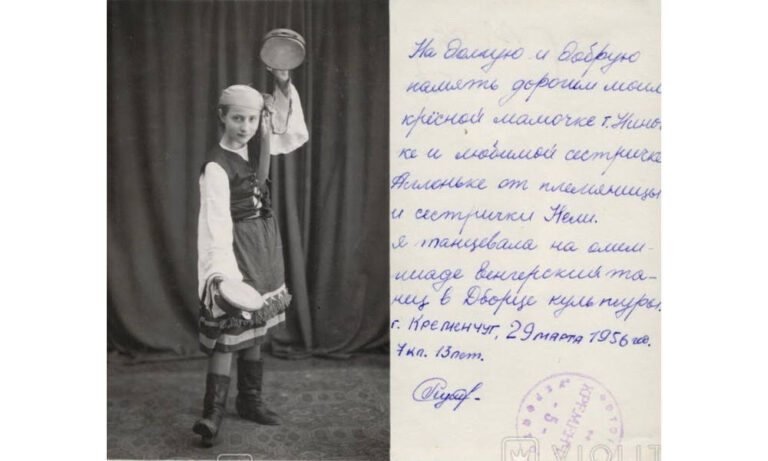 На долгую и добрую
память дорогим моим
крёсной мамочке т. Нино
ке и любимой сестричке
Аллоньке от племянницы
и сестрички Нели.
Я танцевала на олим-
пиаде венгерский та-
нец в Дворце культуры.
г. Кременчуг, 29 марта 1956 год.
7 кл. 13 лет.
КРЕМЕНЧУГ
- 5 -
VIOLITY